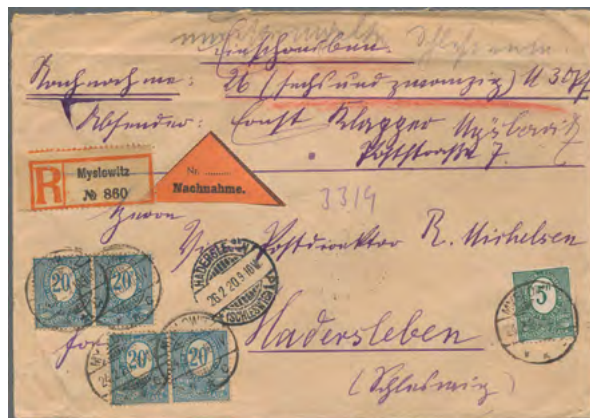 Einschreiben.
Nachnahme: 26 (sechs und zwanzig) M 30 Pf
Absender: Ernst Klapper Myslowitz
Poststraße 7.
R
Myslowitz
№ 860
Nr.
Nachnahme.
3314
Herrn
Postdirektor R. Michelsen
HADERSLEBEN
26.2.20.9-10V.
(SCHLESWIG)
20 20
20 20
5
Hadersleben
(Schleswig)